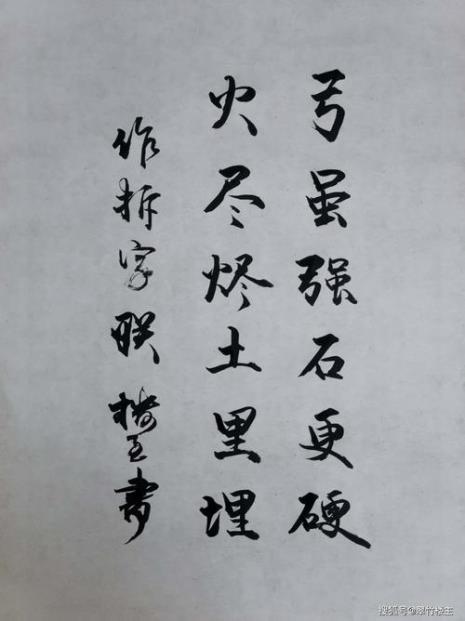 弓虽强石更硬
火尽烬土里埋
作拆字联楼主书
搜狐号@翠竹楼主